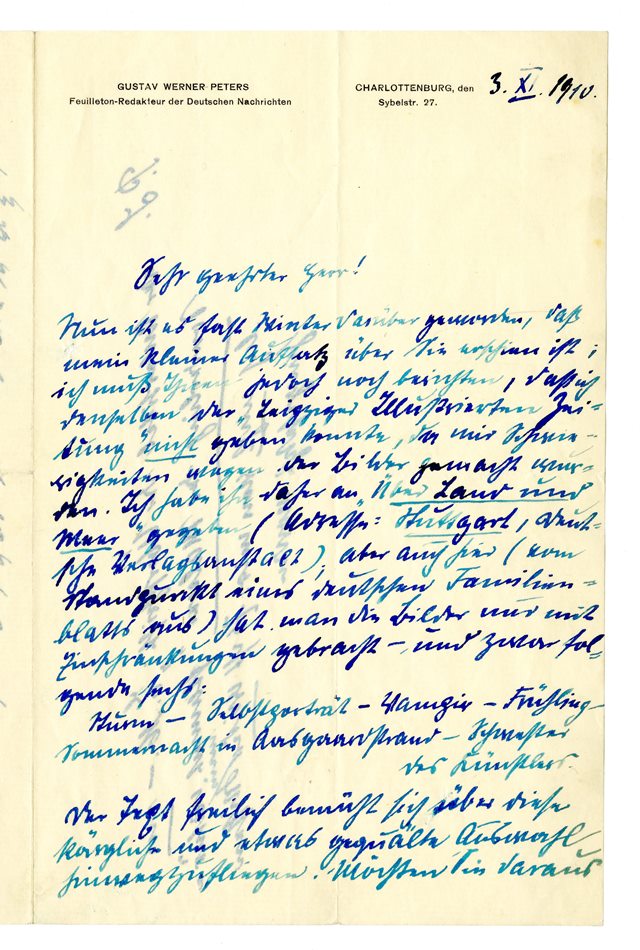 GUSTAV WERNER PETERS
Feuilleton-Redakteur der Deutschen Nachrichten
CHARLOTTENBURG, den 3. XI. 1910.
Sybelstr. 27.
Sehr geehrter Herr!
Nun ist es fast Winter darüber geworden, daß
mein kleiner Aufsatz über Sie erschien ist;
ich muß Ihnen jedoch noch berichten, daß ich
denselben der „Leipziger Illustrierten Zei-
tung" nicht geben konnte, da mir Schwie-
rigkeiten wegen der Bilder gemacht wur-
den. Ich habe ihn daher an „Über Land und
Meer" gegeben (Adresse: Stuttgart, Deut-
sche Verlagsanstalt); aber auch hier (vom
Standpunkt eines deutschen Familien-
blatts aus) hat man die Bilder nur mit
Einschränkungen gebracht – und zwar fol-
gende sechs:
Sturm – Selbstporträt – Vampir – Frühling –
Sommernacht in Aasgaardstrand – Schwester
des Künstlers.
Der Text freilich bemüht sich über diese
kärgliche und etwas gequälte Auswahl
hinwegzufliegen. Möchten Sie daraus